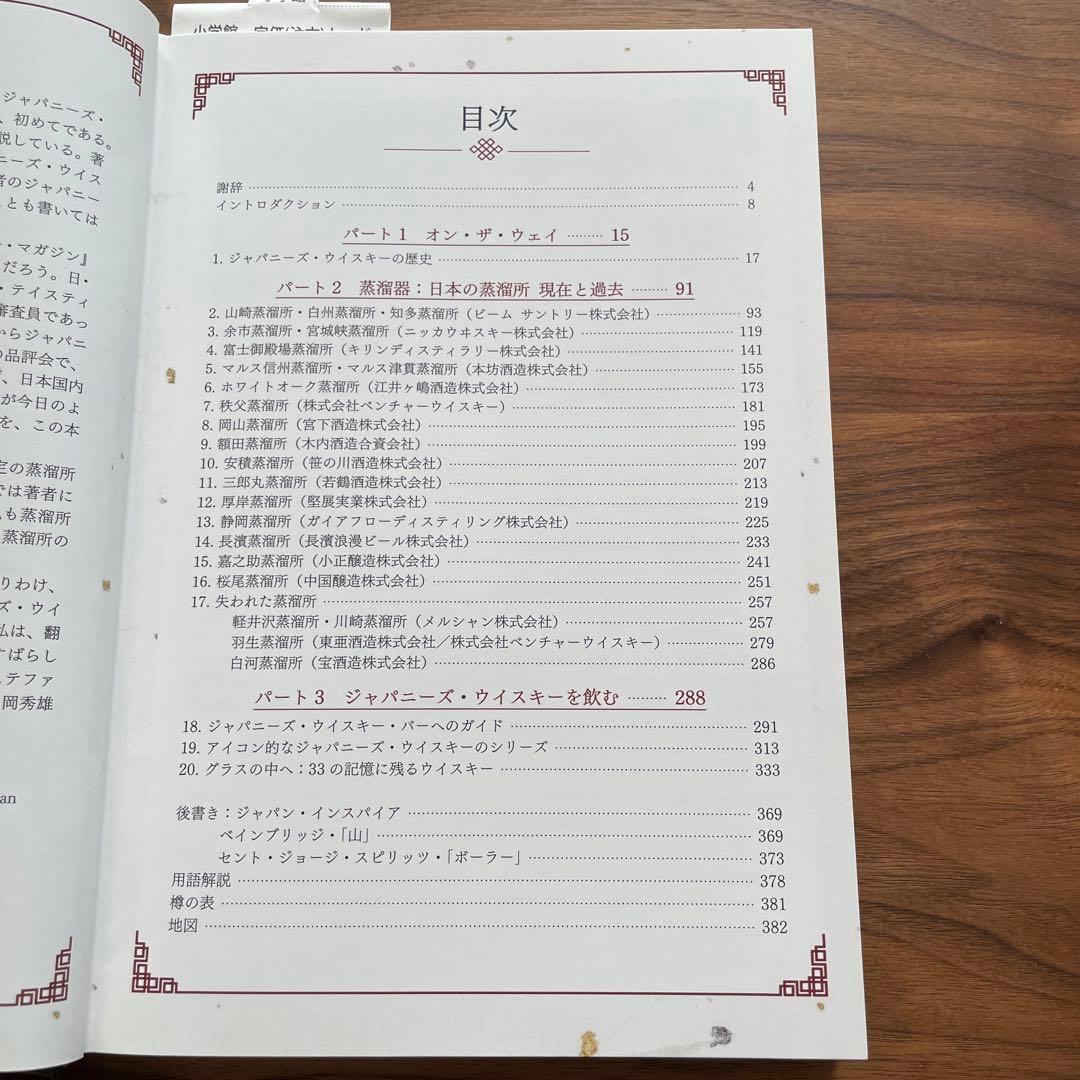 小学館
ジャパニーズ・
、初めてである。
説している。著
ニーズ・ウイス
者のジャパニー
とも書いては
・マガジン』
だろう。日・
・テイスティ
審査員であっ
からジャパニ
の品評会で、
、日本国内
が今日のよ
を、この本
定の蒸溜所
では著者に
も蒸溜所
蒸溜所の
りわけ、
ズ・ウイ
私は、翻
すばらし
ステファ
岡秀雄
an
目次
謝辞 4
イントロダクション 8
パート1 オン・ザ・ウェイ 15
1. ジャパニーズ・ウイスキーの歴史 17
パート2 蒸溜器：日本の蒸溜所 現在と過去 91
2. 山崎蒸溜所・白州蒸溜所・知多蒸溜所（ビーム サントリー株式会社） 93
3. 余市蒸溜所・宮城峡蒸溜所（ニッカウヰスキー株式会社） 119
4. 富士御殿場蒸溜所（キリンディスティラリー株式会社） 141
5. マルス信州蒸溜所・マルス津貫蒸溜所（本坊酒造株式会社） 155
6. ホワイトオーク蒸溜所（江井ヶ嶋酒造株式会社） 173
7. 秩父蒸溜所（株式会社ベンチャーウイスキー） 181
8. 岡山蒸溜所（宮下酒造株式会社） 195
9. 額田蒸溜所（木内酒造合資会社） 199
10. 安積蒸溜所（笹の川酒造株式会社） 207
11. 三郎丸蒸溜所（若鶴酒造株式会社） 213
12. 厚岸蒸溜所（堅展実業株式会社） 219
13. 静岡蒸溜所（ガイアフローディスティリング株式会社） 225
14. 長濱蒸溜所（長濱浪漫ビール株式会社） 233
15. 嘉之助蒸溜所（小正醸造株式会社） 241
16. 桜尾蒸溜所（中国醸造株式会社） 251
17. 失われた蒸溜所 257
軽井沢蒸溜所・川崎蒸溜所（メルシャン株式会社） 257
羽生蒸溜所（東亜酒造株式会社／株式会社ベンチャーウイスキー） 279
白河蒸溜所（宝酒造株式会社） 286
パート3 ジャパニーズ・ウイスキーを飲む 288
18. ジャパニーズ・ウイスキー・バーへのガイド 291
19. アイコン的なジャパニーズ・ウイスキーのシリーズ 313
20. グラスの中へ：33の記憶に残るウイスキー 333
後書き：ジャパン・インスパイア 369
ベインブリッジ・「山」 369
セント・ジョージ・スピリッツ・「ボーラー」 373
用語解説 378
樽の表 381
地図 382